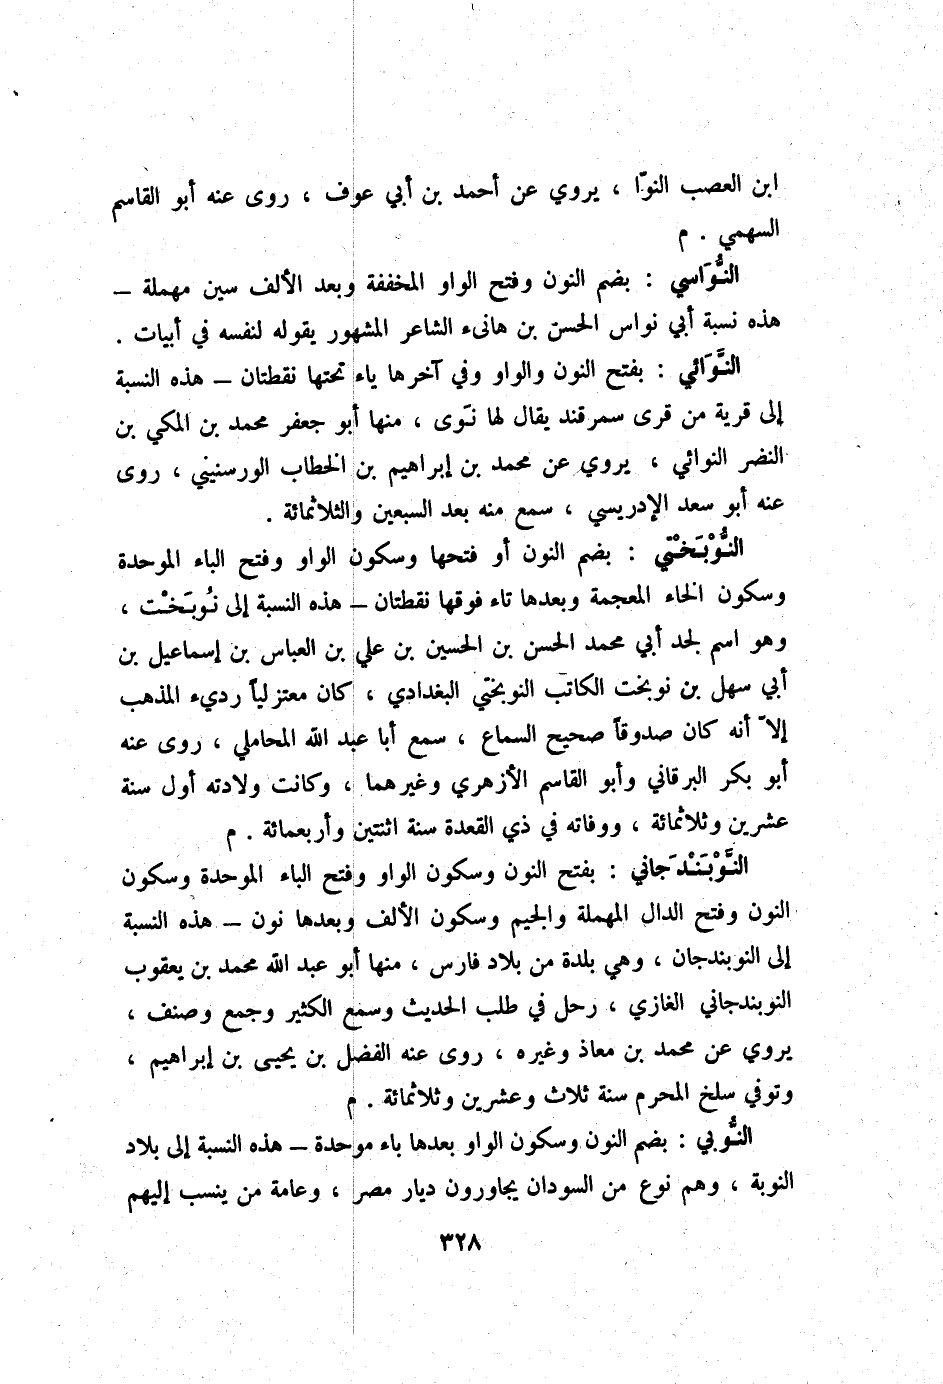 ابن العصب النوّا ، يروي عن أحمد بن أبي عوف ، روى عنه أبو القاسم
السهمي . م
النُّوَاسي : بضم النون وفتح الواو المخففة وبعد الألف سين مهملة –
هذه نسبة أبي نواس الحسن بن هانىء الشاعر المشهور يقوله لنفسه في أبيات .
النَّوَائي : بفتح النون والواو وفي آخرها ياء تحتها نقطتان – هذه النسبة
إلى قرية من قرى سمرقند يقال لها نَوى ، منها أبو جعفر محمد بن المكي بن
النضر النوائي ، يروي عن محمد بن إبراهيم بن الخطاب الورسنيني ، روى
عنه أبو سعد الإدريسي ، سمع منه بعد السبعين والثلاثمائة .
النُّوْبَخْتي : بضم النون أو فتحها وسكون الواو وفتح الباء الموحدة
وسكون الخاء المعجمة وبعدها تاء فوقها نقطتان – هذه النسبة إلى نُوبَخْت ،
وهو اسم لجد أبي محمد الحسن بن الحسين بن علي بن العباس بن إسماعيل بن
أبي سهل بن نوبخت الكاتب النوبختي البغدادي ، كان معتزلياً رديء المذهب
إلاّ أنه كان صدوقاً صحيح السماع ، سمع أبا عبد الله المحاملي ، روى عنه
أبو بكر البرقاني وأبو القاسم الأزهري وغيرهما ، وكانت ولادته أول سنة
عشرين وثلاثمائة ، ووفاته في ذي القعدة سنة اثنتين وأربعمائة . م
النَّوْبَنْدَجاني : بفتح النون وسكون الواو وفتح الباء الموحدة وسكون
النون وفتح الدال المهملة والجيم وسكون الألف وبعدها نون – هذه النسبة
إلى النوبندجان ، وهي بلدة من بلاد فارس ، منها أبو عبد الله محمد بن يعقوب
النوبندجاني الغازي ، رحل في طلب الحديث وسمع الكثير وجمع وصنف ،
يروي عن محمد بن معاذ وغيره ، روى عنه الفضل بن يحيى بن إبراهيم ،
وتوفي سلخ المحرم سنة ثلاث وعشرين وثلاثمائة . م
النُّوبي : بضم النون وسكون الواو بعدها باء موحدة – هذه النسبة إلى بلاد
النوبة ، وهم نوع من السودان يجاورون ديار مصر ، وعامة من ينسب إليهم
٣٢٨